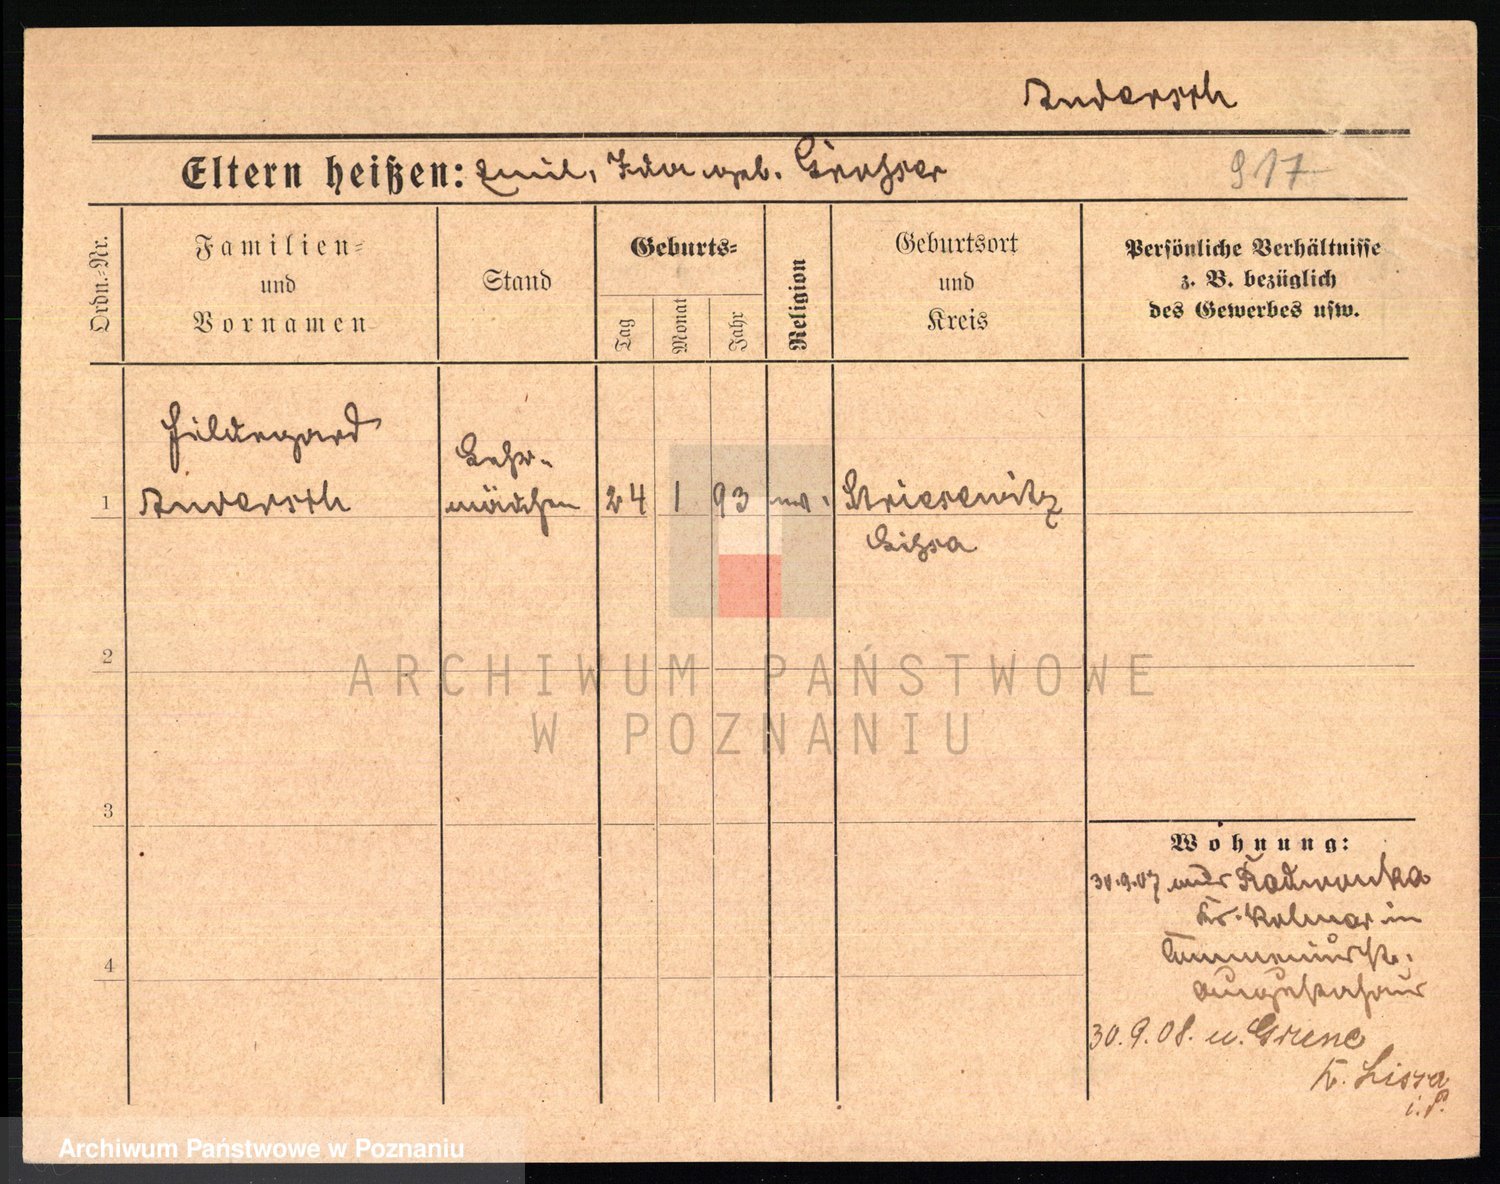 Andersch
Eltern heißen: Emil, Ida geb.
917
Ordn.-Nr.
Familien-
und
Vornamen
Stand
Geburts-
Tag
Monat
Jahr
Religion
Geburtsort
und
Kreis
Persönliche Verhältnisse
z. B. bezüglich
des Gewerbes usw.
Hildegard
1 Andersch
Lehr-
mädchen
24 1 93 ev. Striesewitz
Lissa
2
3
4
Wohnung:
30.9.07 aus Radwonka
Kr. Kolmar in
30.9.08. n. Grune
K. Lissa
i. P.
ARCHIWUM PAŃSTWOWE
W POZNANIU
Archiwum Państwowe w Poznaniu